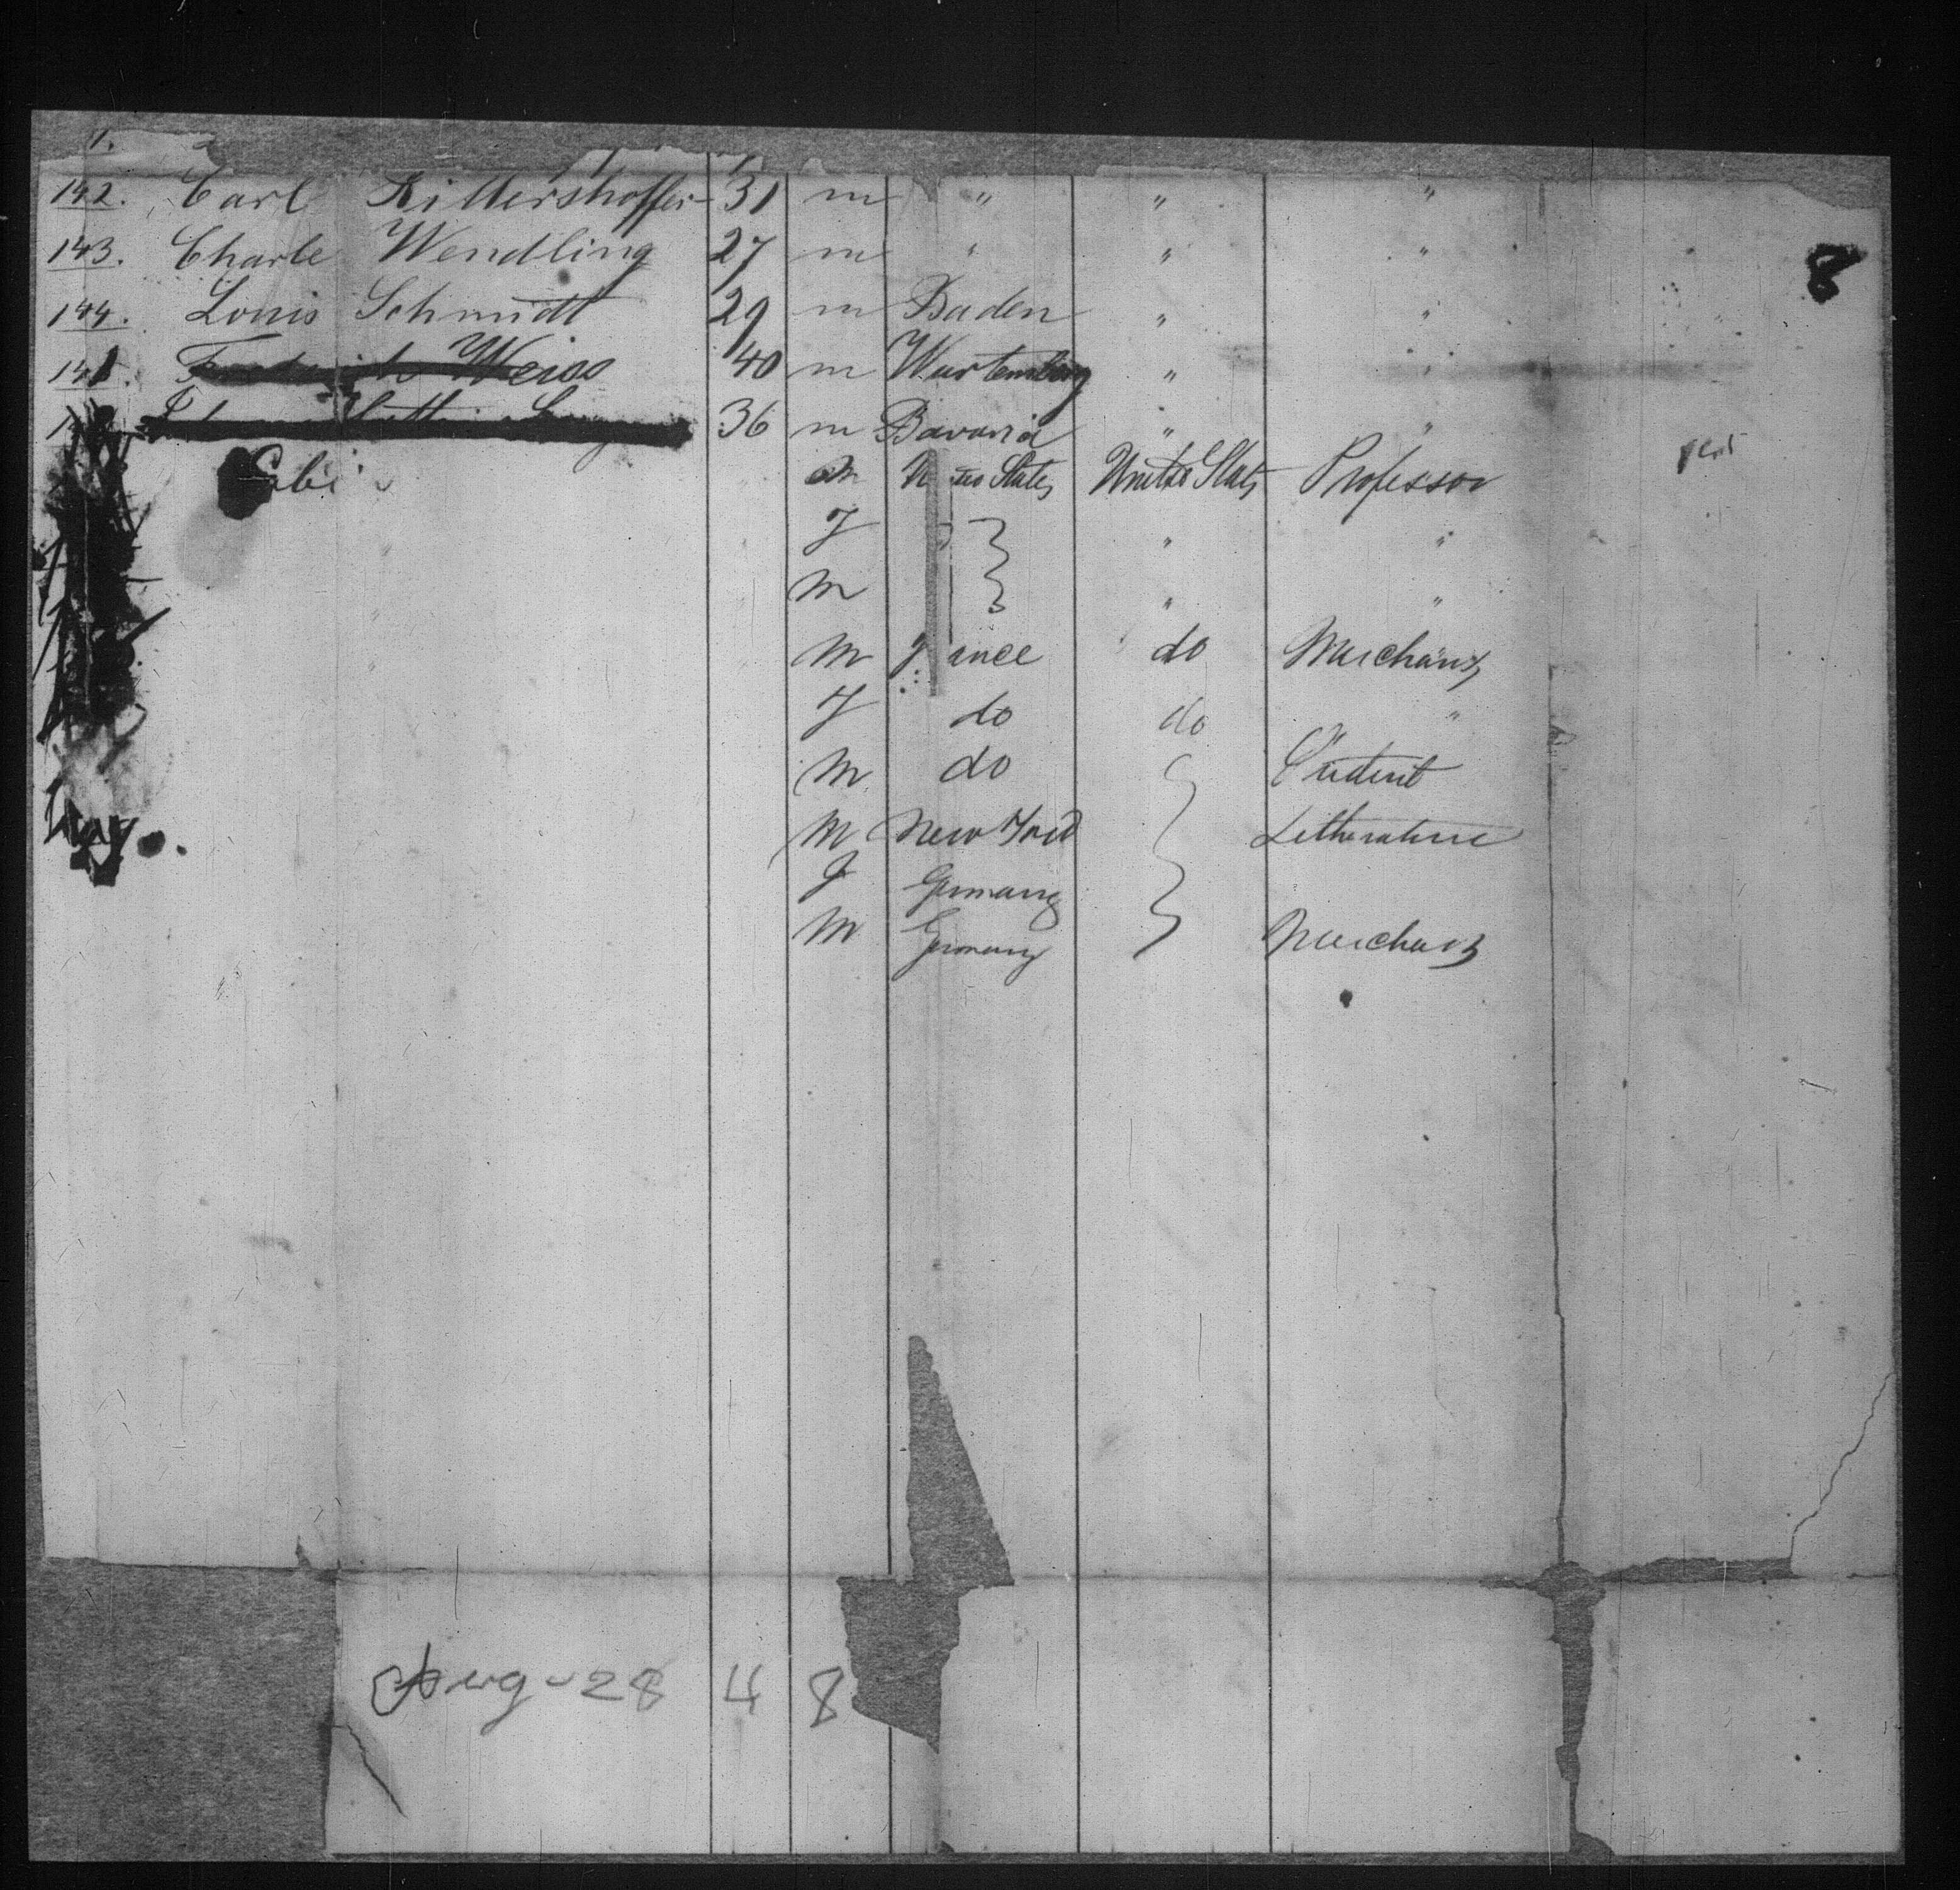 142. Carl Rittershoffer 31 m " " "
143. Charle Wendling 27 m " " "
144. Louis Schmidt 29 m Baden " "
8
145. Frederich Weiss 40 m Wurtemberg " "
36 m Bavaria " "
m States United States Professor
f " "
m " "
m ance do Merchant
f do do "
m do Student
m New York Litterature
f Germany
m Germany Merchant
Aug - 28 48